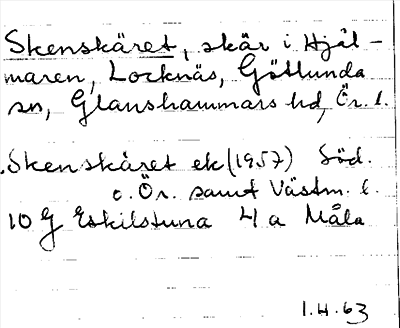 Skenskäret, skär i Hjäl-
maren, Locknäs, Götlunda
sn, Glanshammars hd, Ör. l.
Skenskäret ek (1957) Söd.
o. Ör. samt Västm. l.
10 G Eskilstuna 4 a Måla
1.4.63